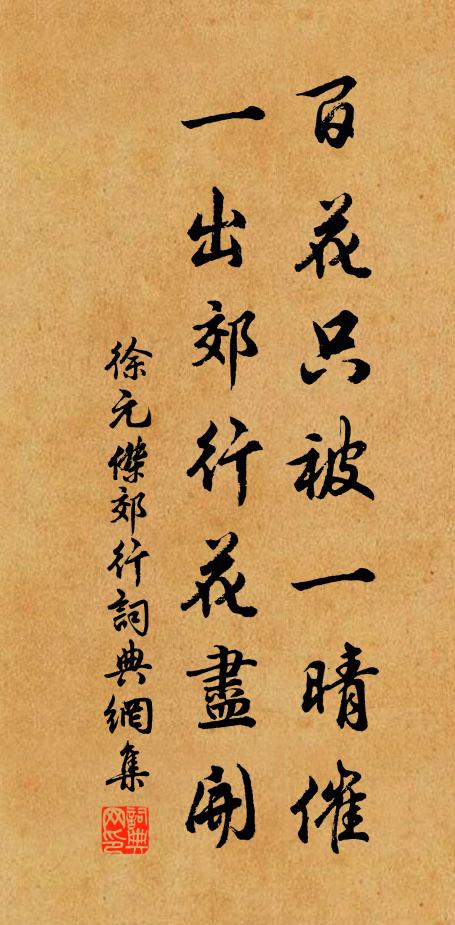 百花只被一晴催
一出郊行花盡開
徐元傑郊行詞典網集
詞典網印